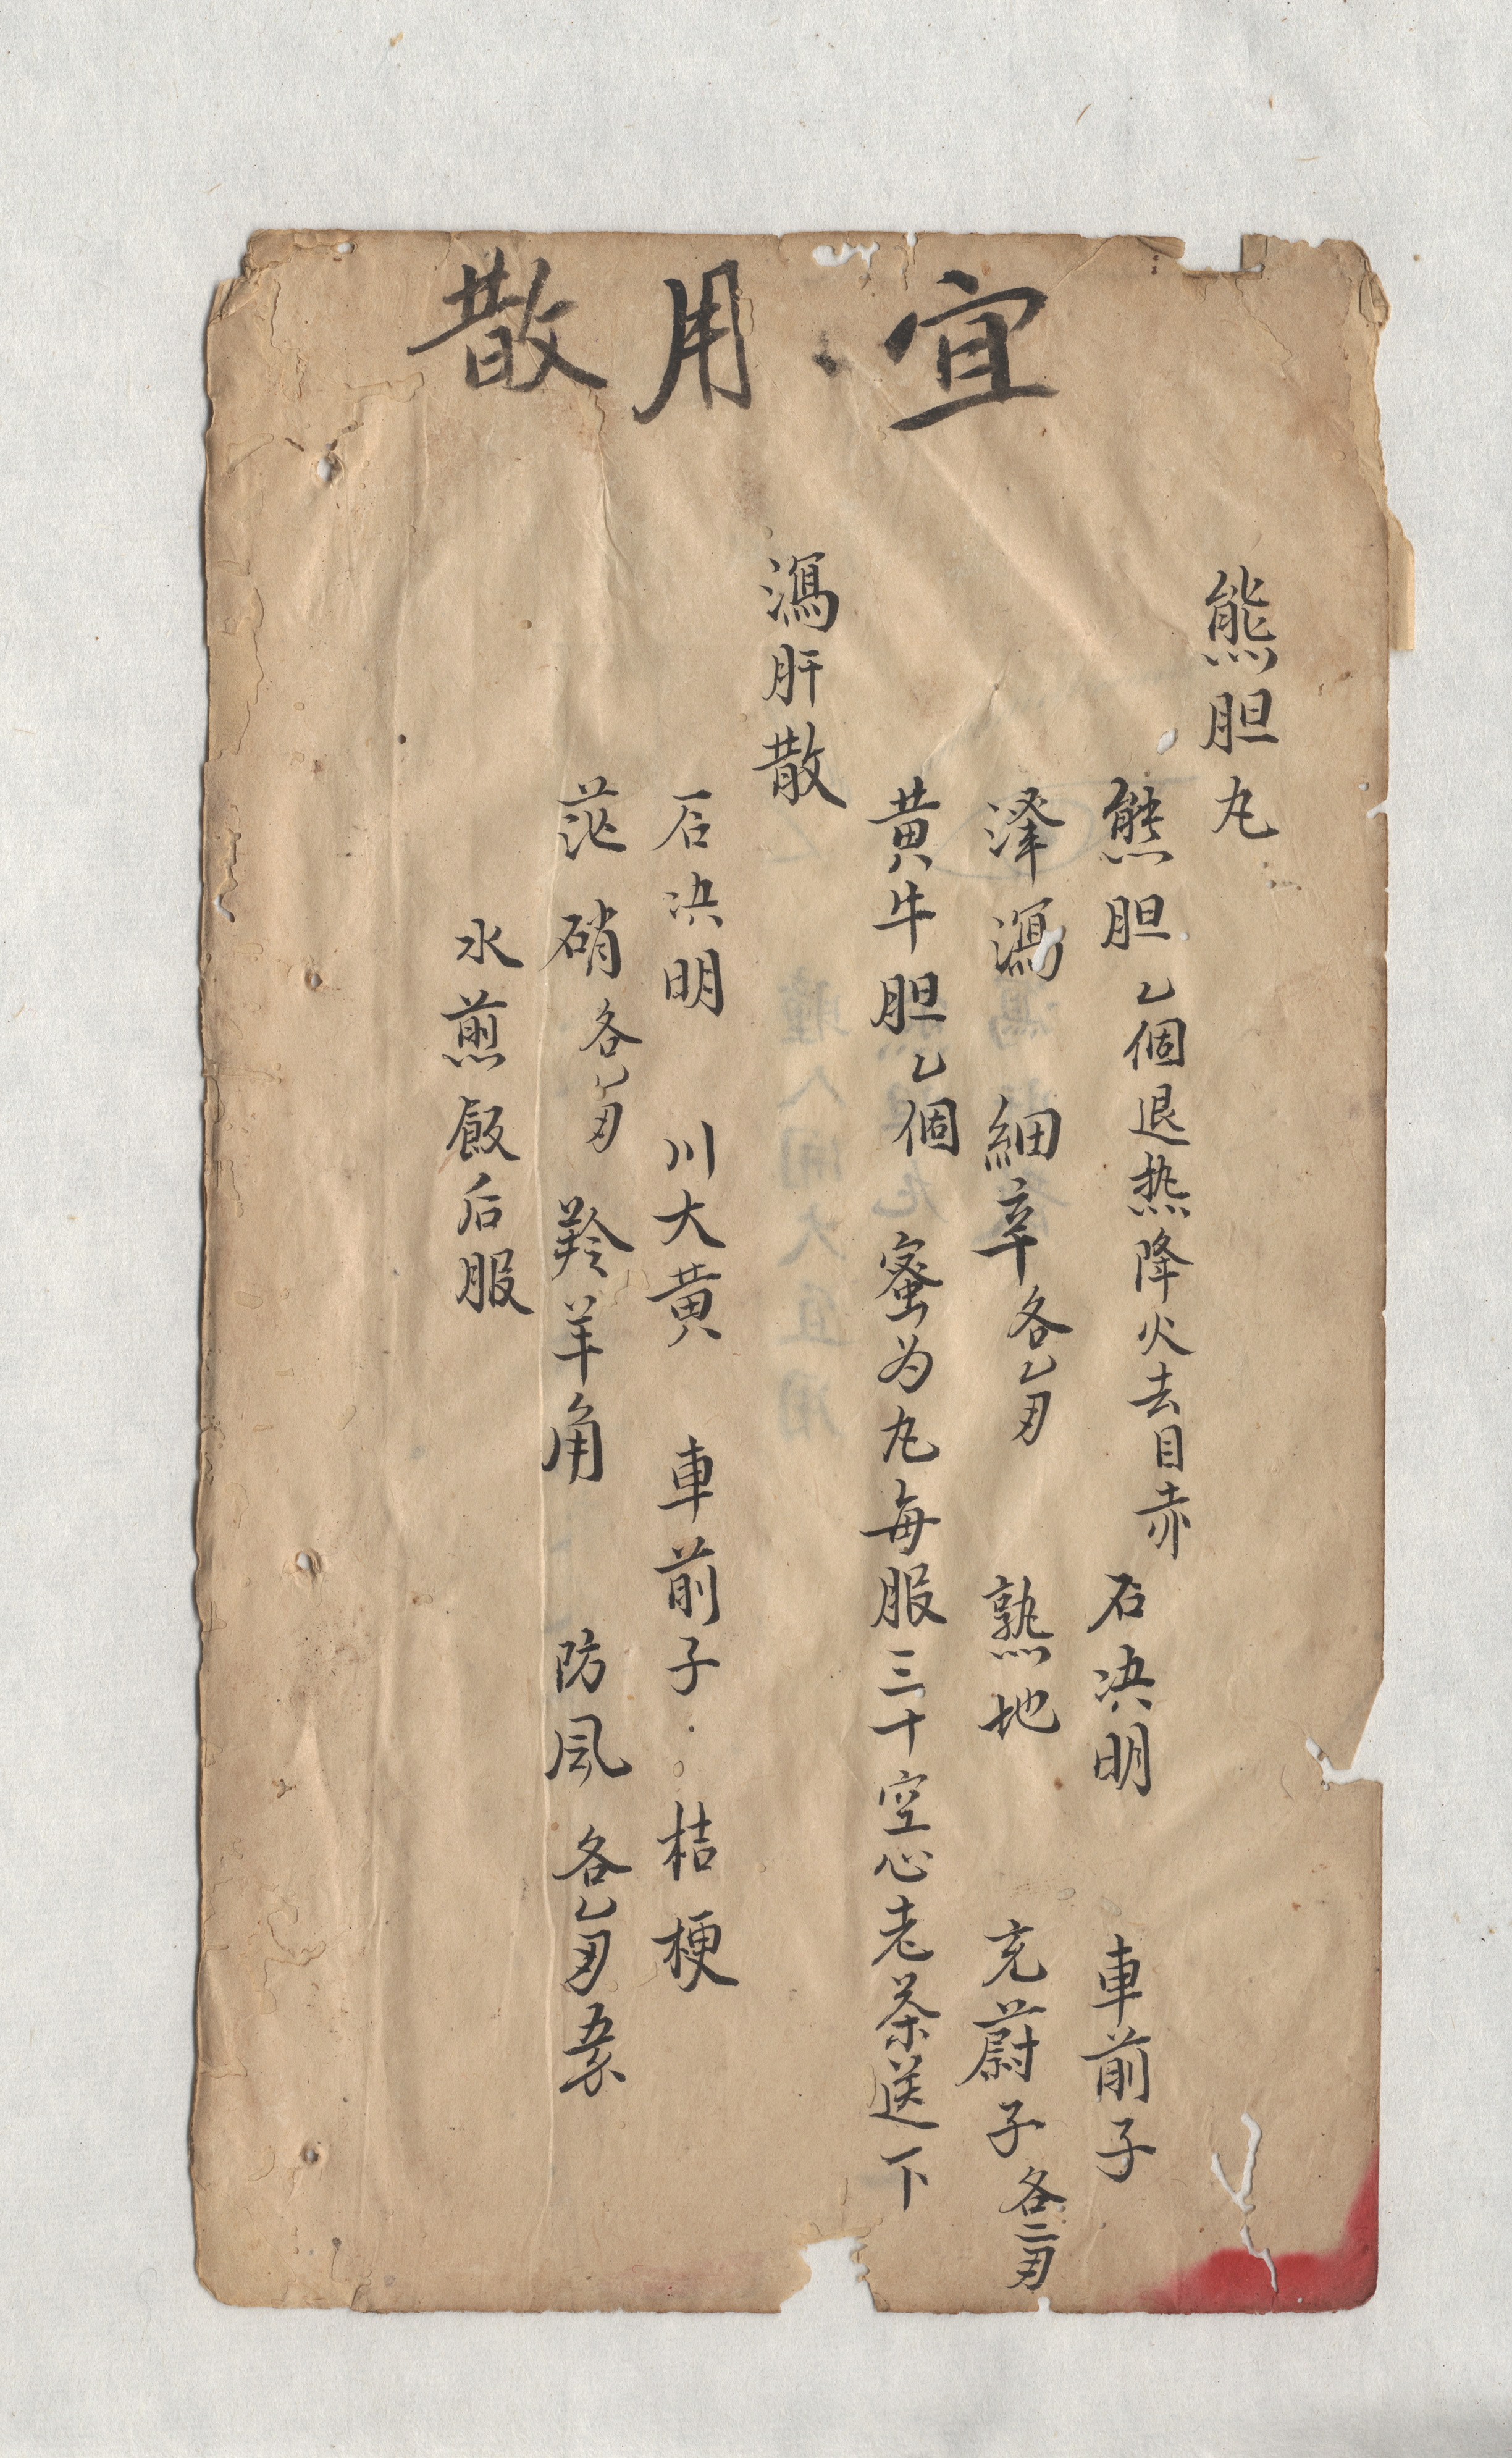 宜用散
熊胆丸
熊胆乙個退热降火去目赤 石决明 車前子
澤瀉 細辛各乙刄 熟地 充蔚子各二刄
黄牛胆乙個 蜜为丸每服三十空心老茶送下
瀉肝散
石决明 川大黄 車前子 桔梗
茫硝各乙刄 羚羊角 防風 各乙刄五
水煎飯后服